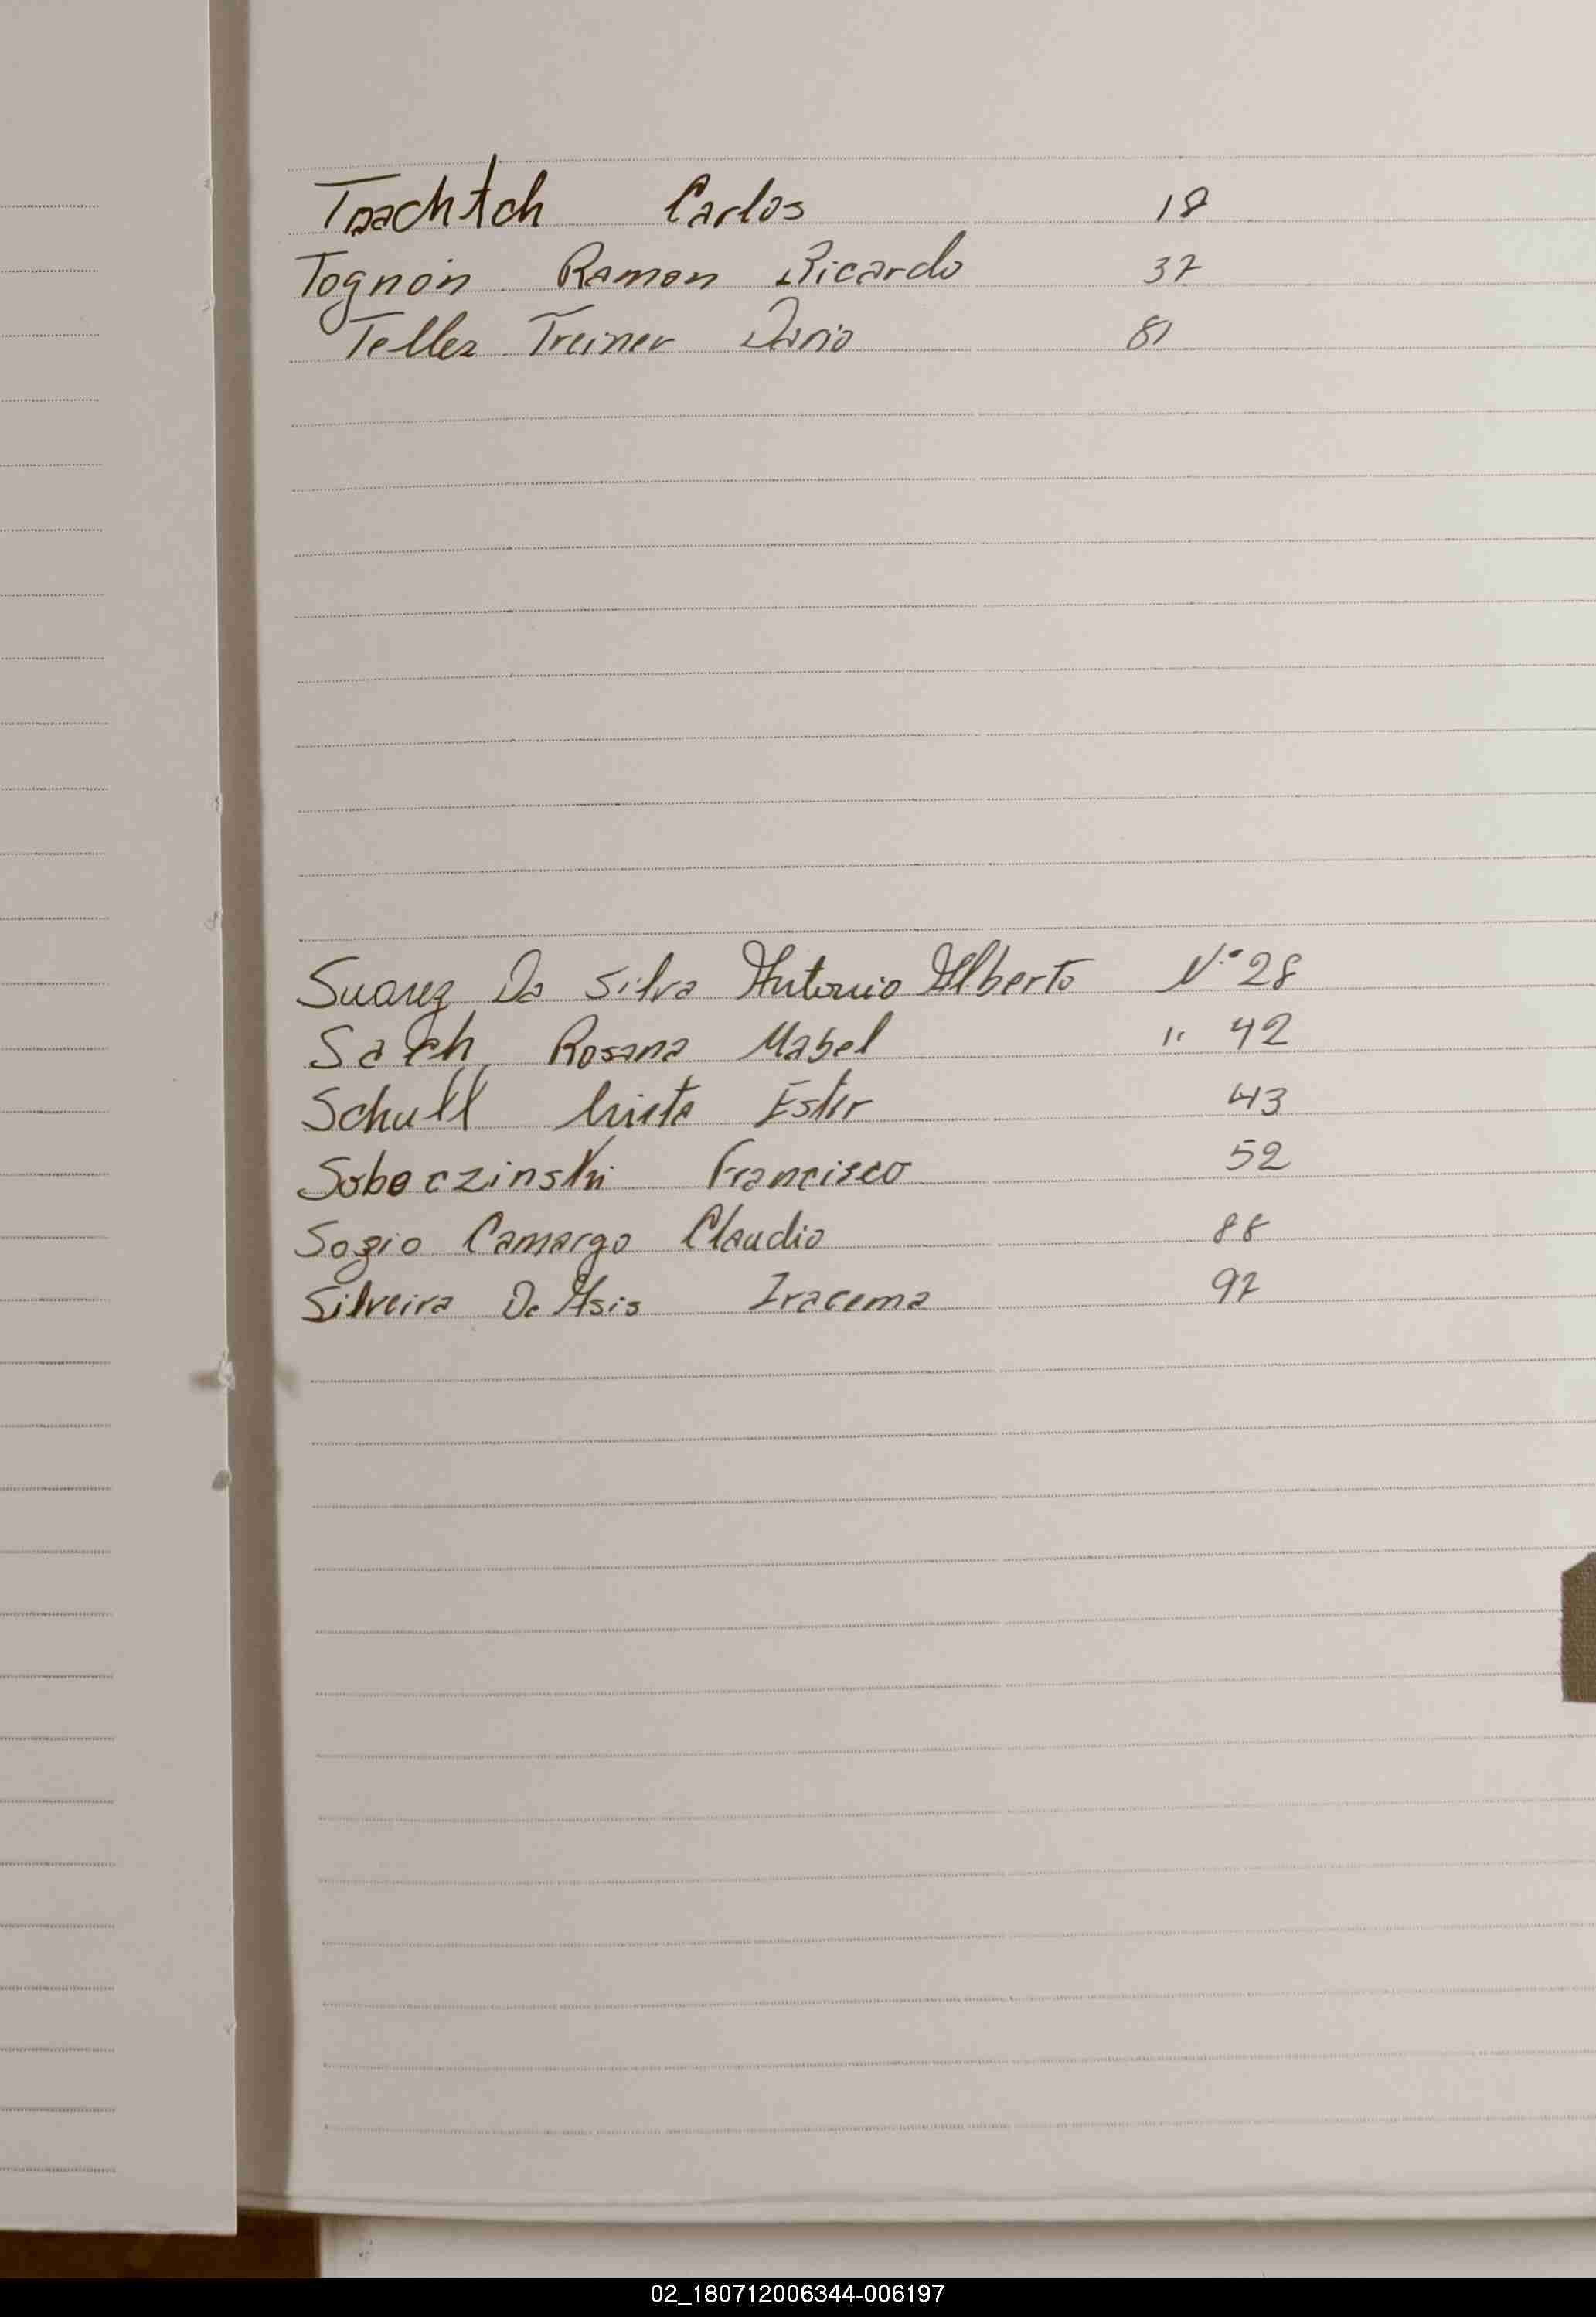 Carlos 18
Tognon Ramon Ricardo 37
Tellez Treiner Dario 81
Suarez Da Silva Antonio Alberto N° 28
Rosana Mabel " 42
Schull Ester 43
Soboczinski Francisco 52
Sozio Camargo Claudio 88
Silveira De Asis Iracema 92
02_180712006344-006197